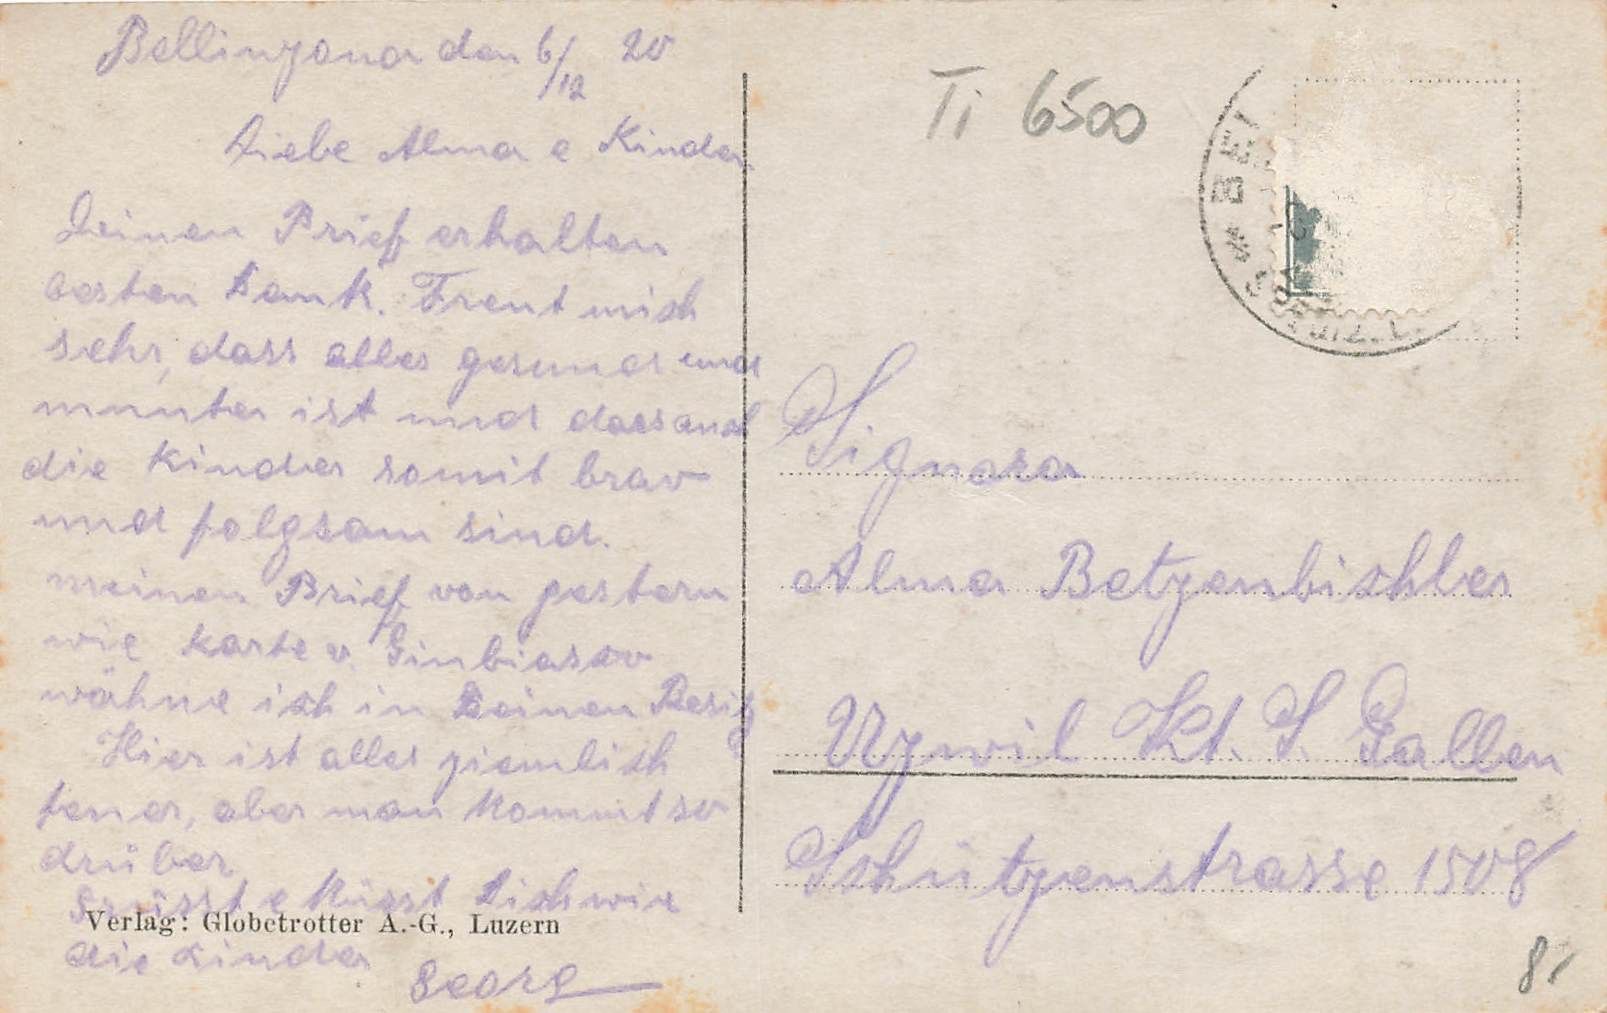 Bellinzona den 6/12 20
Liebe Alma e Kinder
Deinen Brief erhalten
besten Dank. Freut mich
sehr, dass alles gesund und
munter ist und dass auch
die Kinder somit brav
und folgsam sind.
meinen Brief von gestern
wie Karte v. Giubiasco
wähne ich in Deinen Besitz
Hier ist alles ziemlich
teuer, aber man kommt so
drüber
Grüsst e Küsst Dich wie
die Kinder
Georg
Verlag: Globetrotter A.-G., Luzern
Ti 6500
BEL
Signora
Alma Betzenbichler
Uzwil Kt. S. Gallen
Schützenstrasse 1508
8/